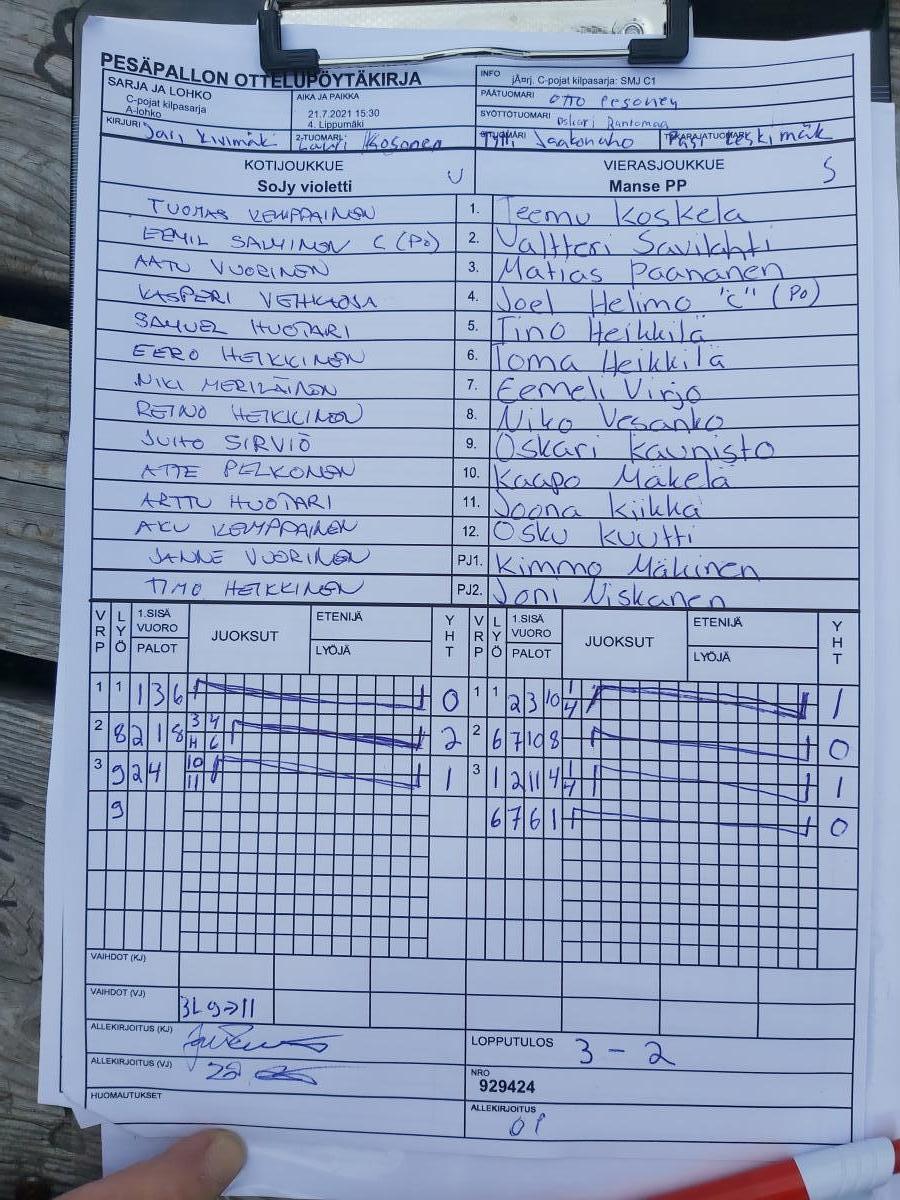 PESÄPALLON OTTELUPÖYTÄKIRJA
SARJA JA LOHKO
C-pojat kilpasarja
A-lohko
AIKA JA PAIKKA
21.7.2021 15:30
4. Lippumäki
INFO jÃ¤rj. C-pojat kilpasarja: SMJ C1
PÄÄTUOMARI Otto Pesonen
SYÖTTÖTUOMARI Oskari Rantomaa
KIRJURI Jari Kivimäki
2-TUOMARI Lauri Kosonen
Jaakonaho
TAKARAJATUOMARI Pasi Keskimäk
KOTIJOUKKUE U
SoJy violetti
VIERASJOUKKUE S
Manse PP
TUOMAS KEMPPAINEN 1. Teemu Koskela
EEMIL SALMINEN C (PO) 2. Valtteri Savilahti
AATU VUORINEN 3. Matias Paananen
KASPERI 4. Joel Helimo "C" (PO)
SAMUEL HUOTARI 5. Tino Heikkilä
EERO HEIKKINEN 6. Toma Heikkilä
NIKI MERILÄINEN 7. Eemeli Virjo
REINO HEIKKINEN 8. Niko Vesanko
JUHO SIRVIÖ 9. Oskari Kaunisto
ATTE PELKONEN 10. Kaapo Mäkelä
ARTTU HUOTARI 11. Joona Kiikka
AKU KEMPPAINEN 12. Osku Kuutti
JANNE VUORINEN PJ1. Kimmo Mäkinen
TIMO HEIKKINEN PJ2. Joni Niskanen
VRP LYÖ 1.SISÄ VUORO PALOT JUOKSUT ETENIJÄ LYÖJÄ YHT VRP LYÖ 1.SISÄ VUORO PALOT JUOKSUT ETENIJÄ LYÖJÄ YHT
1 1 1 3 6 0 1 1 2 3 10 1 4 1
2 8 2 1 8 3 4 11 6 2 2 6 7 10 8 0
3 9 2 4 10 11 1 3 1 2 11 4 1 4 1
9 6 7 6 1 0
VAIHDOT (KJ)
VAIHDOT (VJ) 3L 9→11
ALLEKIRJOITUS (KJ)
LOPPUTULOS 3 - 2
ALLEKIRJOITUS (VJ)
NRO
929424
HUOMAUTUKSET
ALLEKIRJOITUS
OP